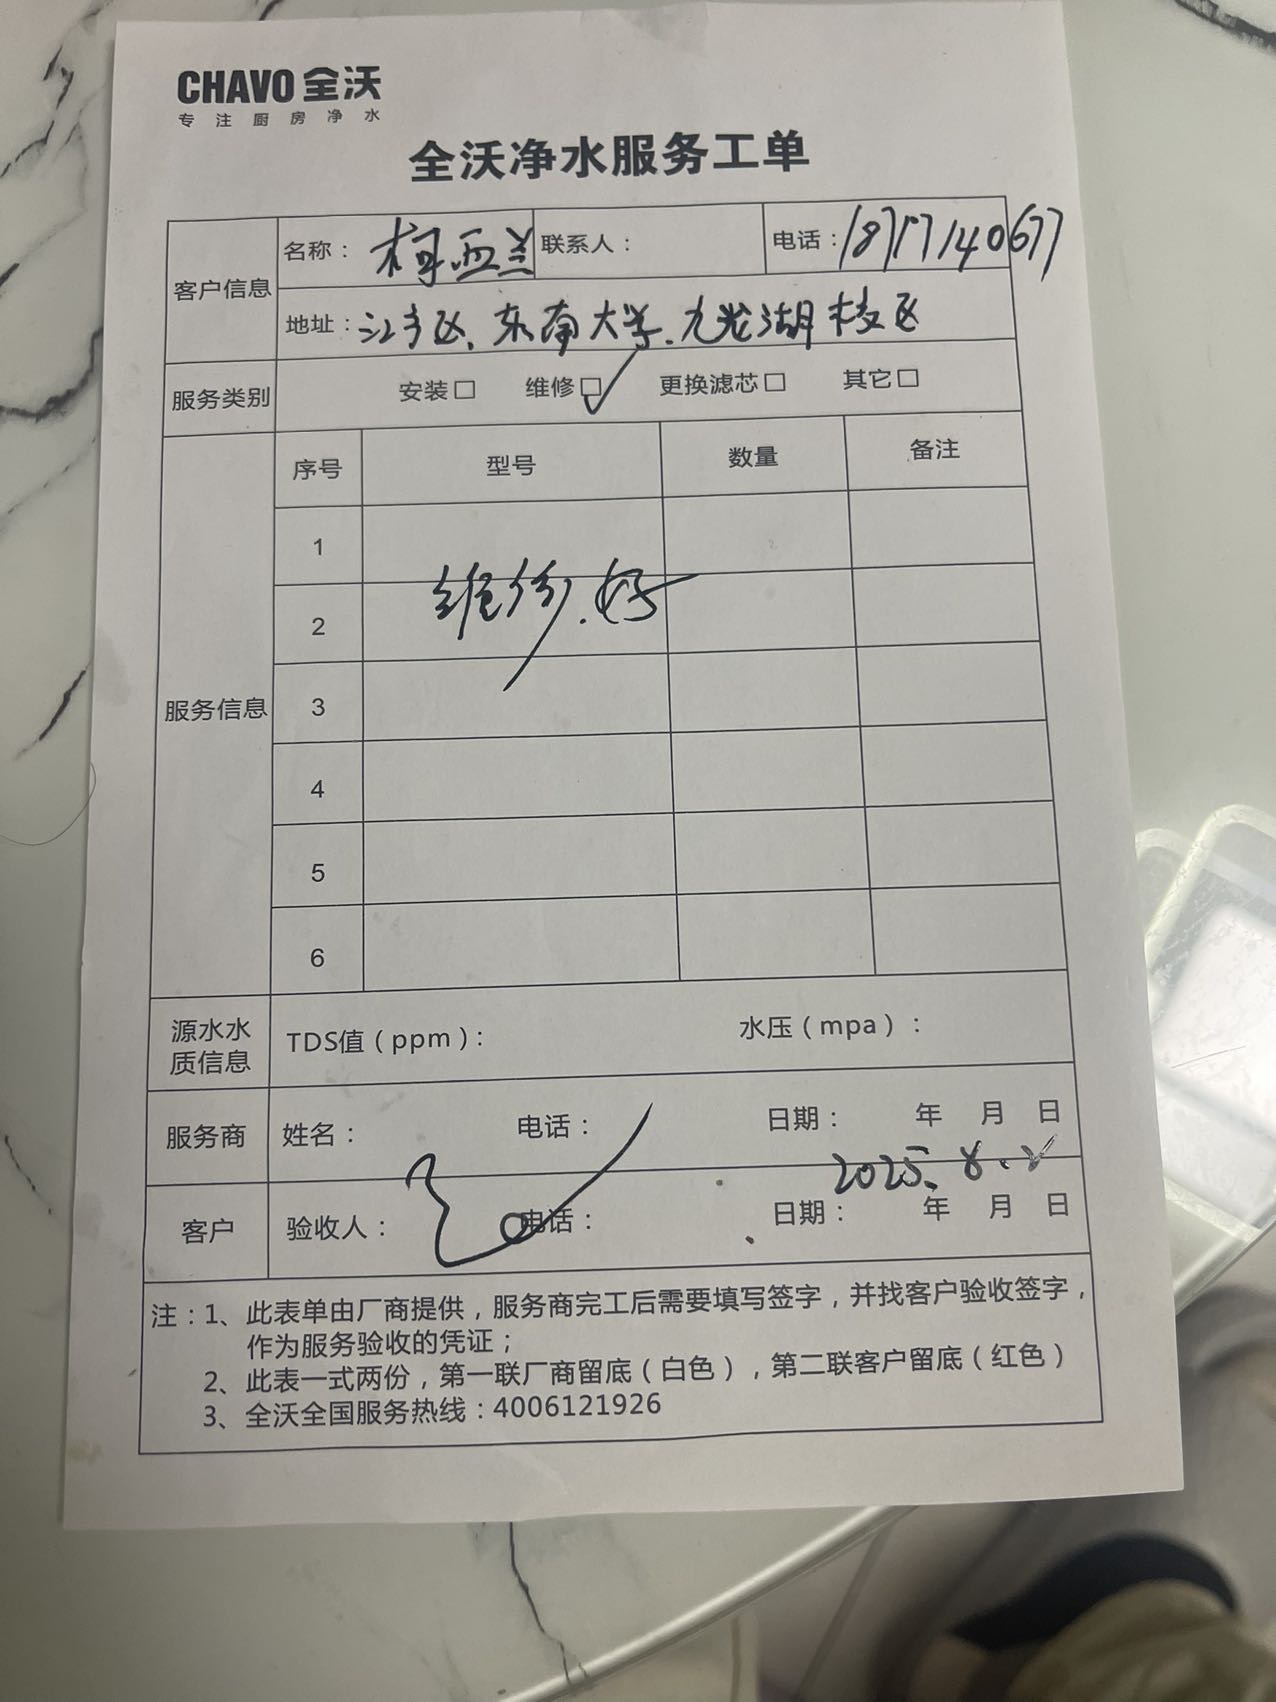 CHAVO 全沃
专注厨房净水
全沃净水服务工单
客户信息
名称：柯亚兰 联系人： 电话：18717140677
地址：江宁区、东南大学.九龙湖校区
服务类别 安装□ 维修□✓ 更换滤芯□ 其它□
服务信息
序号 型号 数量 备注
1
维修.好
2
3
4
5
6
源水水质信息 TDS值（ppm）： 水压（mpa）：
服务商 姓名： 电话： 日期： 年 月 日
2025.8.
客户 验收人： 电话： 日期： 年 月 日
注：1、此表单由厂商提供，服务商完工后需要填写签字，并找客户验收签字，
作为服务验收的凭证；
2、此表一式两份，第一联厂商留底（白色），第二联客户留底（红色）
3、全沃全国服务热线：4006121926